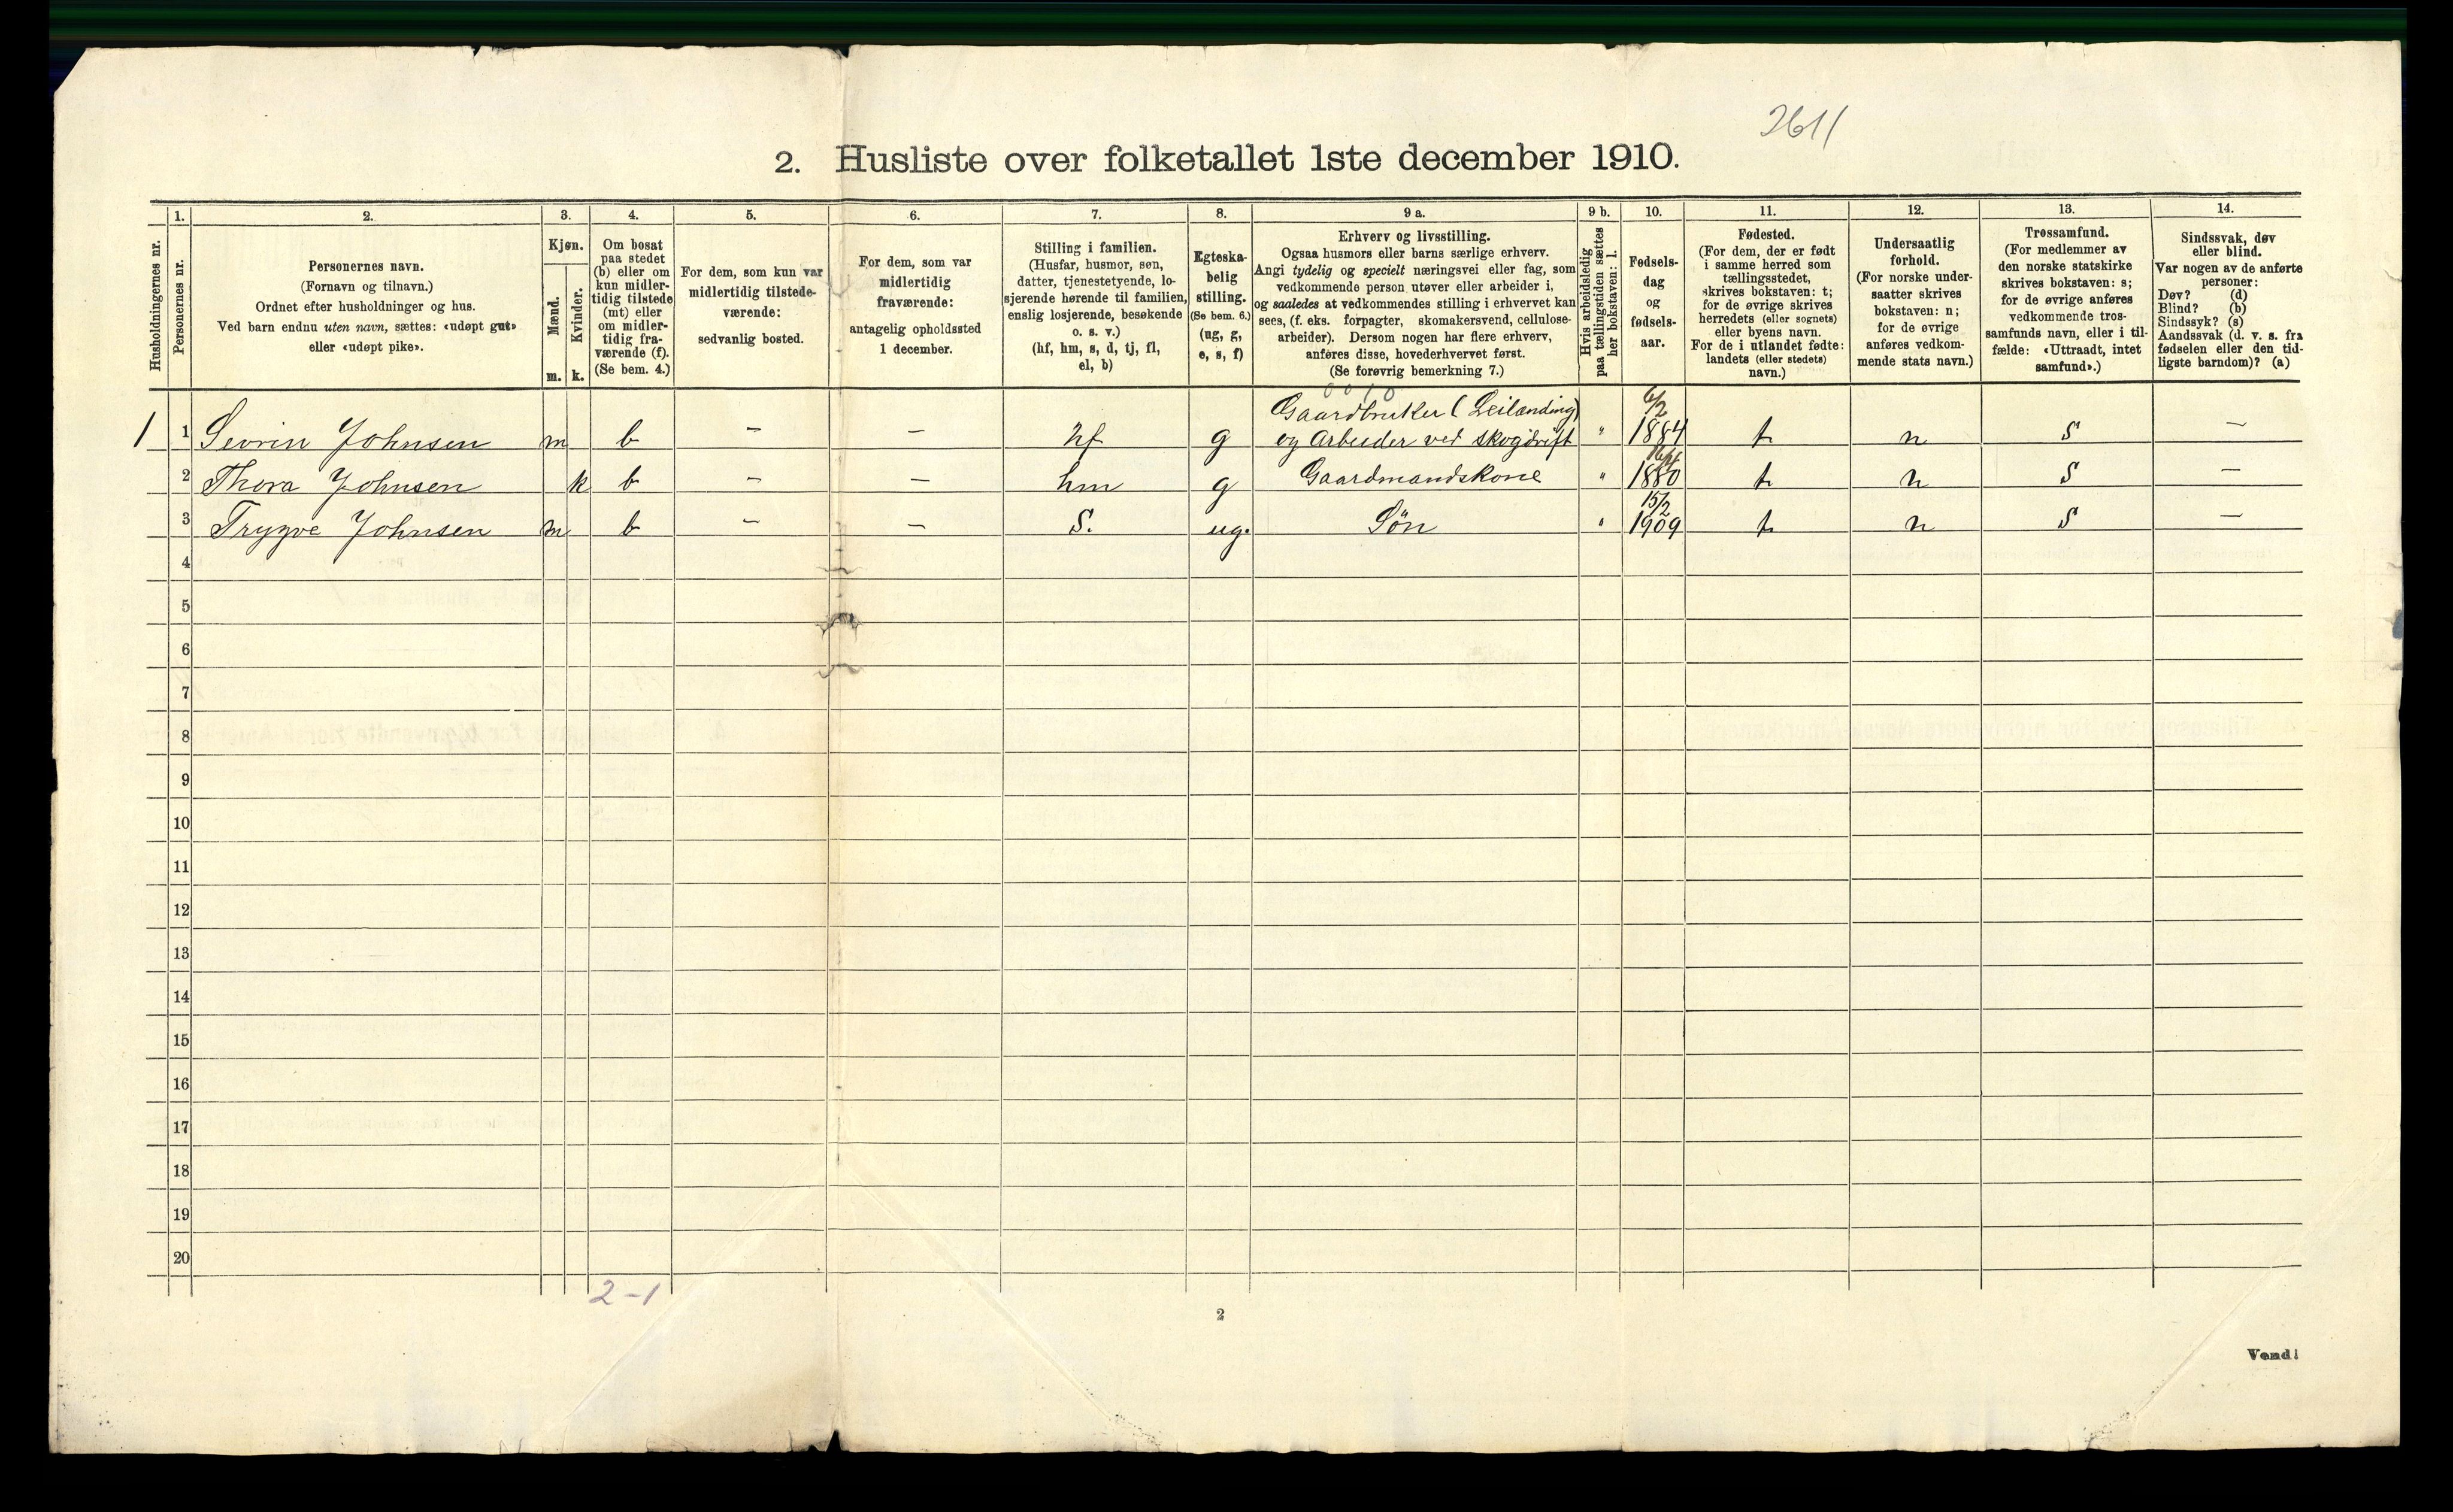 2611
2. Husliste over folketallet 1ste december 1910.
Husholdningernes nr.
1.
Personernes nr.
2.
Personernes navn.
(Fornavn og tilnavn.)
Ordnet efter husholdninger og hus.
Ved barn endnu uten navn, sættes: «udøpt gut»
eller «udøpt pike».
3.
Kjøn.
Mænd.
Kvinder.
m. k.
4.
Om bosat
paa stedet
(b) eller om
kun midler-
tidig tilstede
(mt) eller
om midler-
tidig fra-
værende (f).
(Se bem. 4.)
5.
For dem, som kun var
midlertidig tilstede-
værende:
sedvanlig bosted.
6.
For dem, som var
midlertidig
fraværende:
antagelig opholdssted
1 december.
7.
Stilling i familien.
(Husfar, husmor, søn,
datter, tjenestetyende, lo-
sjerende hørende til familien,
enslig losjerende, besøkende
o. s. v.)
(hf, hm, s, d, tj, fl,
el, b)
8.
Egteska-
belig
stilling.
(Se bem. 6.)
(ug, g,
e, s, f)
9 a.
Erhverv og livsstilling.
Ogsaa husmors eller barns særlige erhverv.
Angi tydelig og specielt næringsvei eller fag, som
vedkommende person utøver eller arbeider i,
og saaledes at vedkommendes stilling i erhvervet kan
sees, (f. eks. forpagter, skomakersvend, cellulose-
arbeider). Dersom nogen har flere erhverv,
anføres disse, hovederhvervet først.
(Se forøvrig bemerkning 7.)
9 b.
Hvis arbeidsledig
paa tællingstiden sættes
her bokstaven: l.
10.
Fødsels-
dag
og
fødsels-
aar.
11.
Fødested.
(For dem, der er født
i samme herred som
tællingsstedet,
skrives bokstaven: t;
for de øvrige skrives
herredets (eller sognets)
eller byens navn.
For de i utlandet fødte:
landets (eller stedets)
navn.)
12.
Undersaatlig
forhold.
(For norske under-
saatter skrives
bokstaven: n;
for de øvrige
anføres vedkom-
mende stats navn.)
13.
Trossamfund.
(For medlemmer av
den norske statskirke
skrives bokstaven: s;
for de øvrige anføres
vedkommende tros-
samfunds navn, eller i til-
fælde: «Uttraadt, intet
samfund».)
14.
Sindssvak, døv
eller blind.
Var nogen av de anførte
personer:
Døv? (d)
Blind? (b)
Sindssyk? (s)
Aandssvak (d. v. s. fra
fødselen eller den tid-
ligste barndom)? (a)
Gaardbruker (Leilænding) 6/2
1 1 Sevrin Johnsen m b — — hf g og Arbeider ved skogdrift " 1884 t n S —
2 Thora Johnsen k b — — hm g Gaardmandskone " 1880 t n S —
15/2
3 Trygve Johnsen m b — — S. ug. Søn " 1909 t n S —
4
5
6
7
8
9
10
11
12
13
14
15
16
17
18
19
20
2-1
2
Vend!